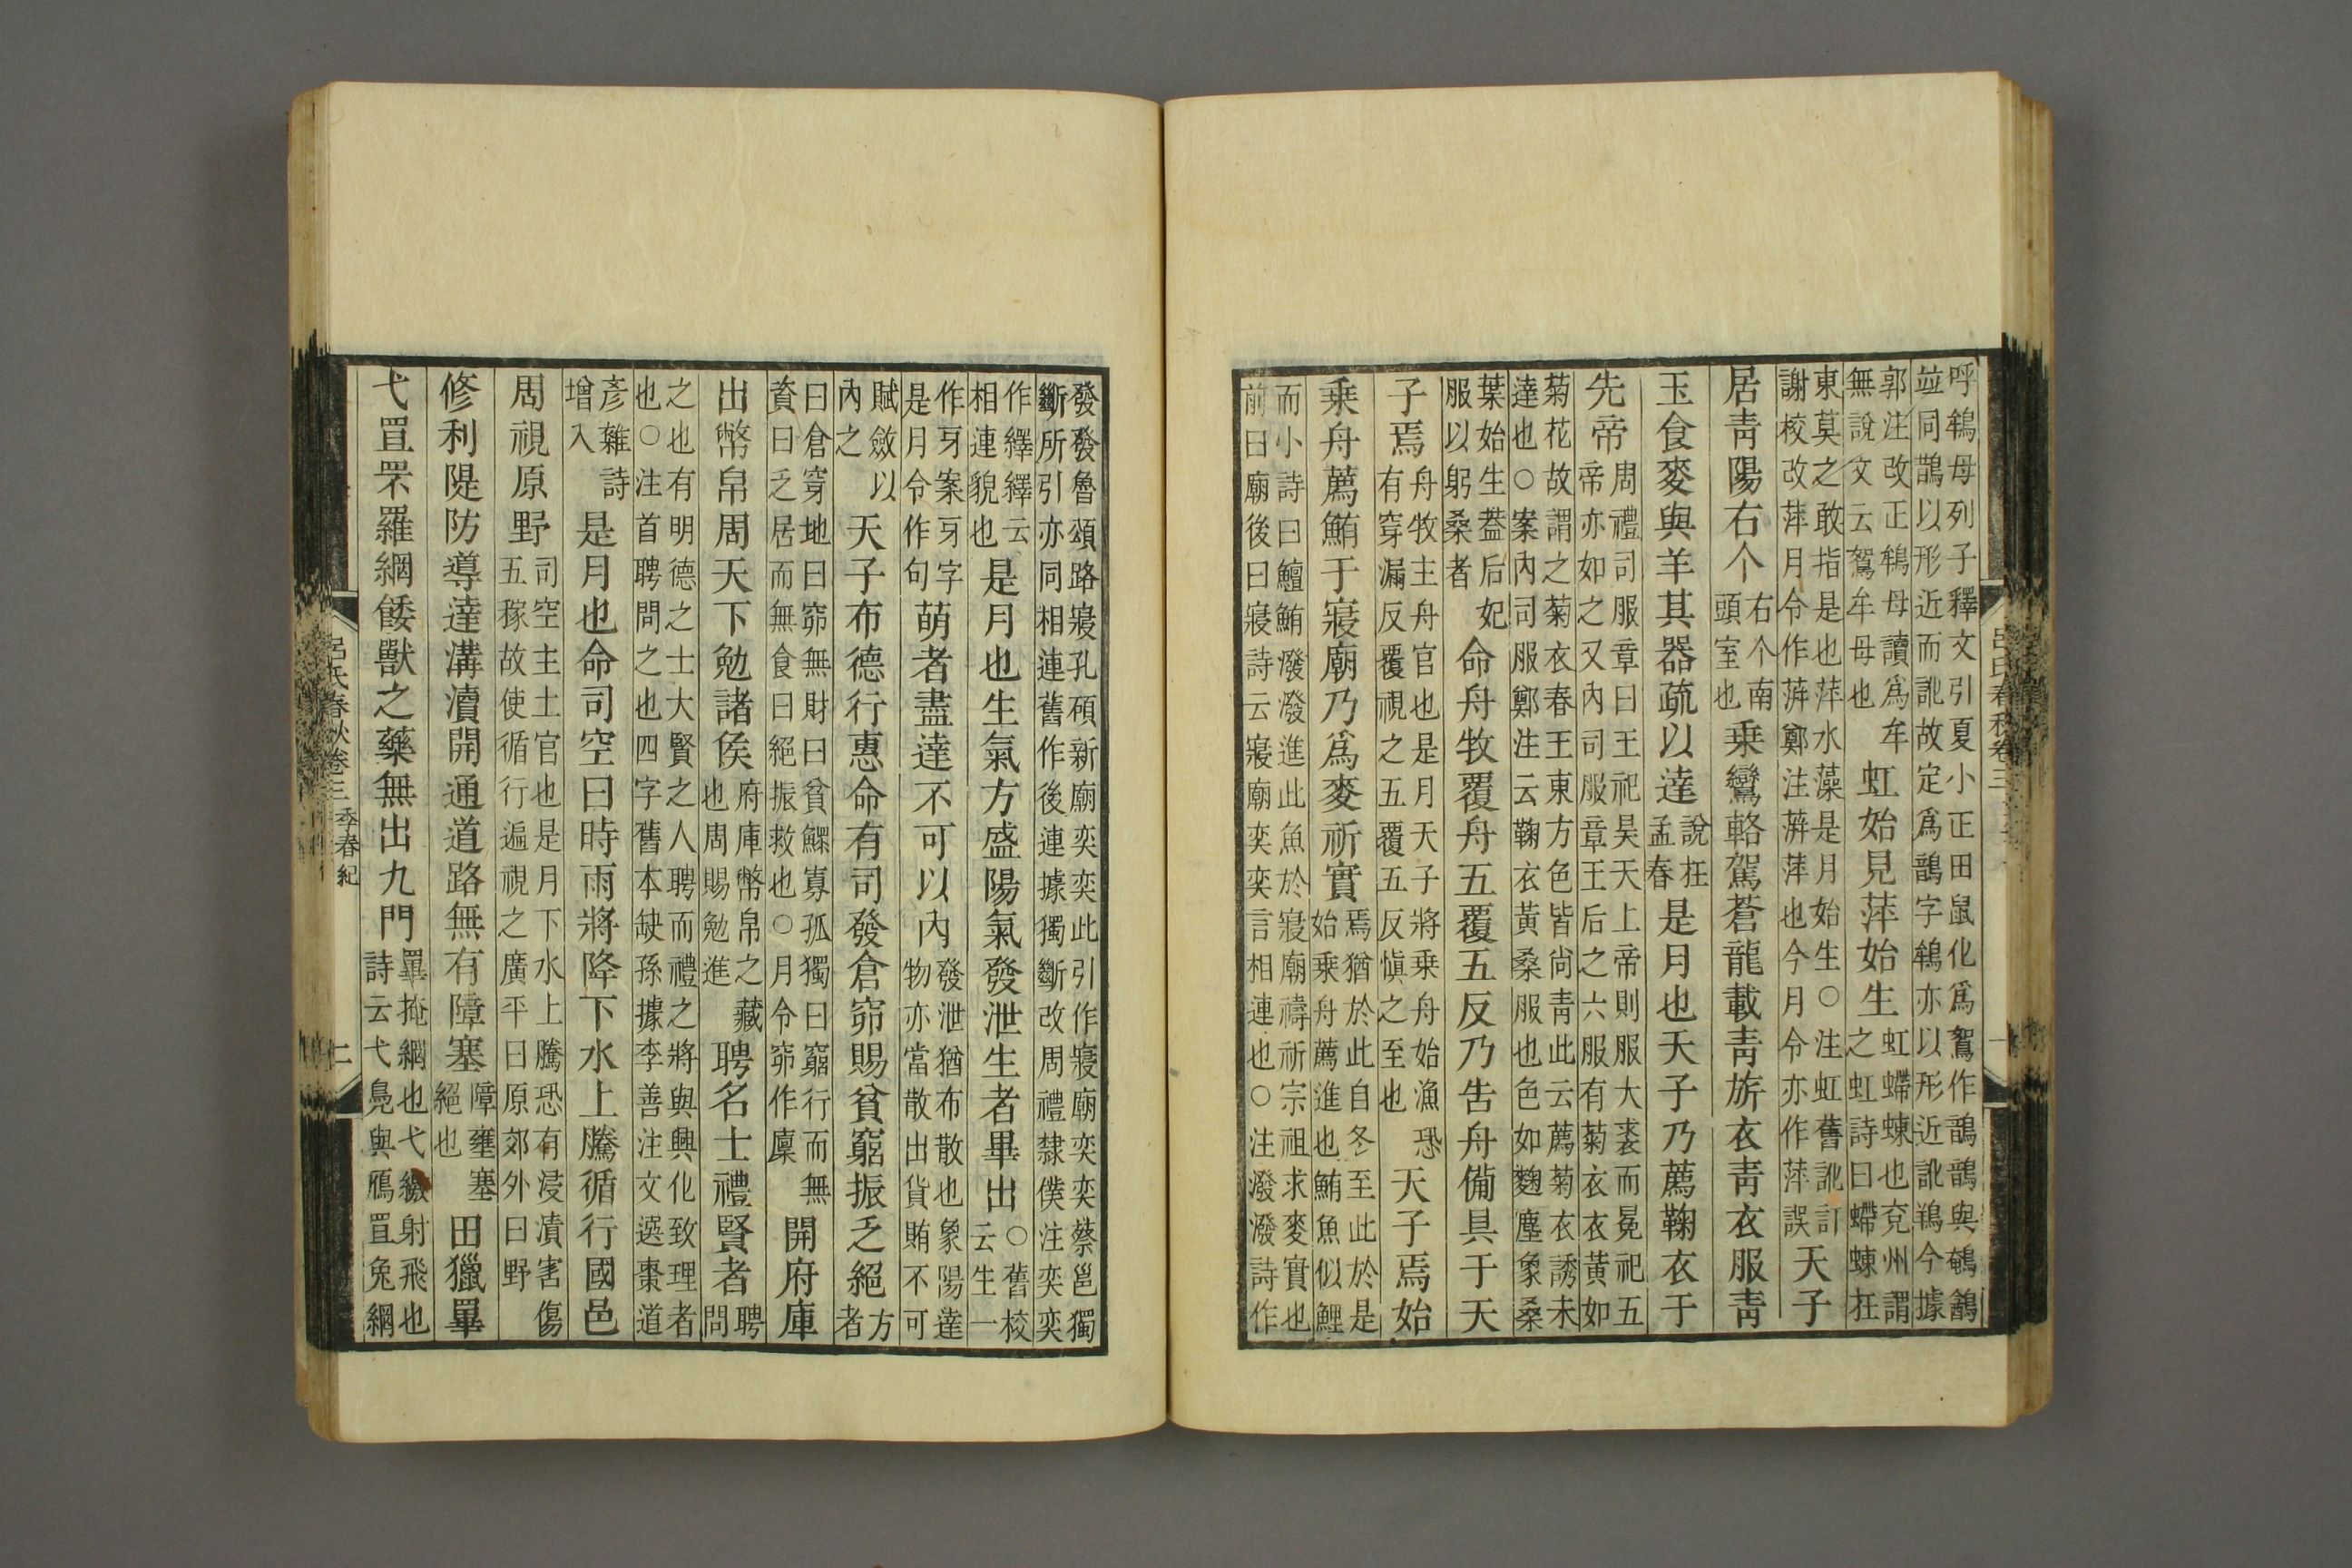 呼鴾母列子釋文引夏小正田鼠化爲鴽作鶕鶕與鵪鶕
竝同鵲以形近而訛故定爲鶕字鴾亦以形近訛鴾今據
郭注改正鴾母讀爲牟
無說文云鴽牟母也
虹始見萍始生
虹螮蝀也兗州謂
之虹詩曰螮蝀在
東莫之敢指是也萍水藻是月始生○注虹舊訛訂
謝校改萍月令作蓱鄭注蓱萍也今月令亦作萍誤
天子
居靑陽右个
右个南
頭室也
乗鸞輅駕蒼龍載靑旂衣靑衣服靑
玉食麥與羊其器疏以達
說在
孟春
是月也天子乃薦鞠衣于
先帝
周禮司服章曰王祀昊天上帝則服大裘而冕祀五
帝亦如之又內司服章王后之六服有菊衣衣黃如
菊花故謂之菊衣春王東方色皆尙靑此云薦菊衣誘未
達也○案內司服鄭注云鞠衣黃桑服也色如麴塵象桑
葉始生葢后妃
服以躬桑者
命舟牧覆舟五覆五反乃吿舟備具于天
子焉
舟牧主舟官也是月天子將乗舟始漁恐
有穿漏反覆視之五覆五反愼之至也
天子焉始
乗舟薦鮪于寢廟乃爲麥祈實
焉猶於此自冬至此於是
始乗舟薦進也鮪魚似鯉
而小詩曰鱣鮪潑潑進此魚於寢廟禱祈宗祖求麥實也
前曰廟後曰寢詩云寢廟奕奕言相連也○注潑潑詩作
發發魯頌路寢孔碩新廟奕奕此引作寢廟奕奕蔡邕獨
斷所引亦同相連舊作後連據獨斷改周禮隸僕注奕奕
作繹繹云
相連貌也
是月也生氣方盛陽氣發泄生者畢出
○舊校
云生一
作牙案牙字
是月令作句
萌者盡達不可以內
發泄猶布散也象陽達
物亦當散出貨賄不可
賦斂以
內之
天子布德行惠命有司發倉窌賜貧窮振乏絕
方
者
曰倉穿地曰窌無財曰貧鰥寡孤獨曰窮行而無
資曰乏居而無食曰絕振救也○月令窌作廩
開府庫
出幣帛周天下勉諸侯
府庫幣帛之藏
也周賜勉進
聘名士禮賢者
聘
問
之也有明德之士大賢之人聘而禮之將與興化致理者
也○注首聘問之也四字舊本缺孫據李善注文選棗道
彥雜詩
增入
是月也命司空曰時雨將降下水上騰循行國邑
周視原野
司空主土官也是月下水上騰恐有浸漬害傷
五稼故使循行遍視之廣平曰原郊外曰野
修利隄防導達溝瀆開通道路無有障塞
障壅塞
絕也
田獵罼
弋罝罘羅網餧獸之藥無出九門
罼掩網也弋繳射飛也
詩云弋鳧與鴈罝兔網
呂氏春秋卷三
一
呂氏春秋卷三 季春紀
二